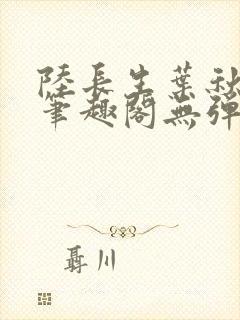 陸長生葉秋
筆趣閣無彈
聶川